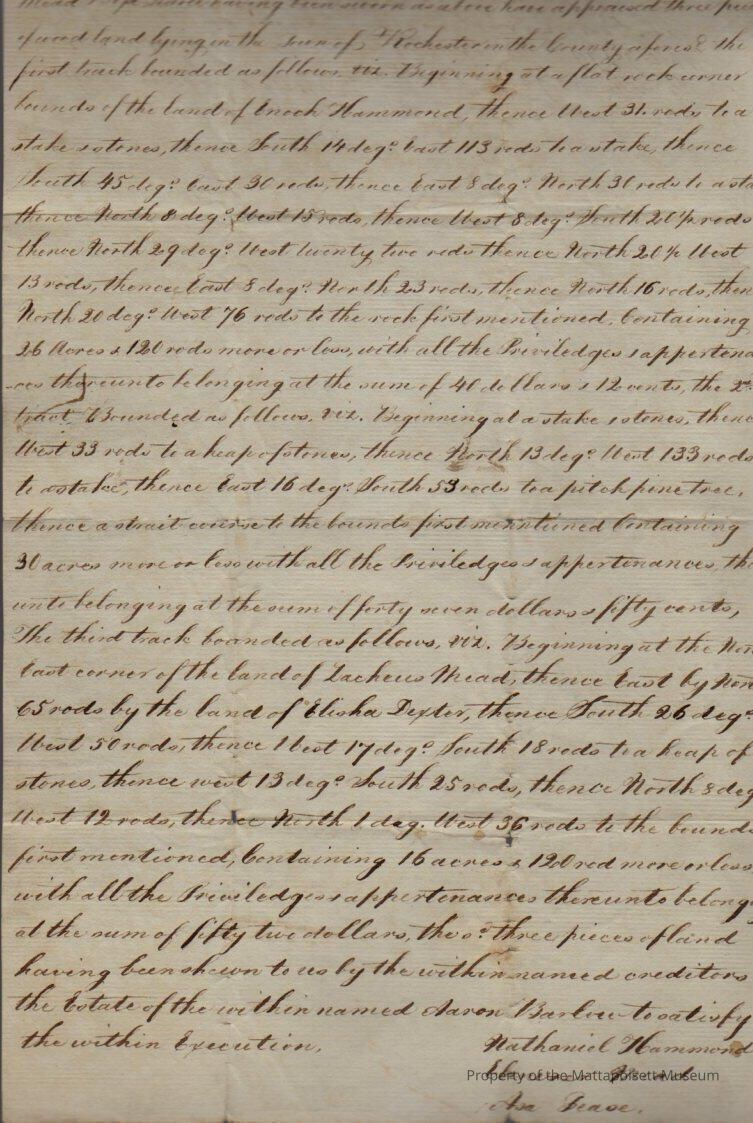 having been sworn as above have appraised three
of wood land lying in the town of Rochester in the County afores.d the
first track bounded as follows, viz. Beginning at a flat rock corner
bounds of the land of Enoch Hammond, thence West 31. rods to a
stake & stones, thence South 14 deg.s East 113 rods to a stake, thence
South 45 deg.s East 30 rods, thence East 8 deg.s North 30 rods to a sta
thence North 8 deg.s West 15 rods, thence West 8 deg.s South 20 1/2 rods
thence North 29 deg.s West twenty two rods thence North 20 1/2 West
13 rods, thence East 8 deg.s North 23 rods, thence North 16 rods, then
North 20 deg.s West 76 rods to the rock first mentioned, Containing
26 Acres & 120 rods more or less, with all the Priviledges & appertena
ces thereunto belonging at the sum of 40 dollars & 12 cents, the 2.d
tract, Bounded as follows, viz. Beginning at a stake & stones, thenc
West 33 rods to a heap of stones, thence North 13 deg.s West 133 rods
to a stake, thence East 16 deg.s South 53 rods to a pitch pine tree,
thence a strait course to the bounds first menntioned Containing
30 acres more or less with all the Priviledges & appertenances, the
unto belonging at the sum of forty seven dollars & fifty cents,
The third track bounded as follows, viz. Beginning at the Nor
East corner of the land of Zacheus Mead, thence East by Nor
65 rods by the land of Elisha Dexter, thence South 26 deg.s
West 50 rods, thence West 17 deg.s South 18 rods to a heap of
stones, thence west 13 deg.s South 25 rods, thence North 8 deg
West 12 rods, thence North 1 deg. West 36 rods to the bounds
first mentioned, Containing 16 acres & 120 rod more or less
with all the Priviledges & appertenances thereunto belong
at the sum of fifty two dollars, the s.d three pieces of land
having been shewn to us by the within named creditors
the Estate of the within named Aaron Barlow to satisfy
the within Execution,
Nathaniel Hammond
Property of the Mattapoisett Museum
Asa Pease.